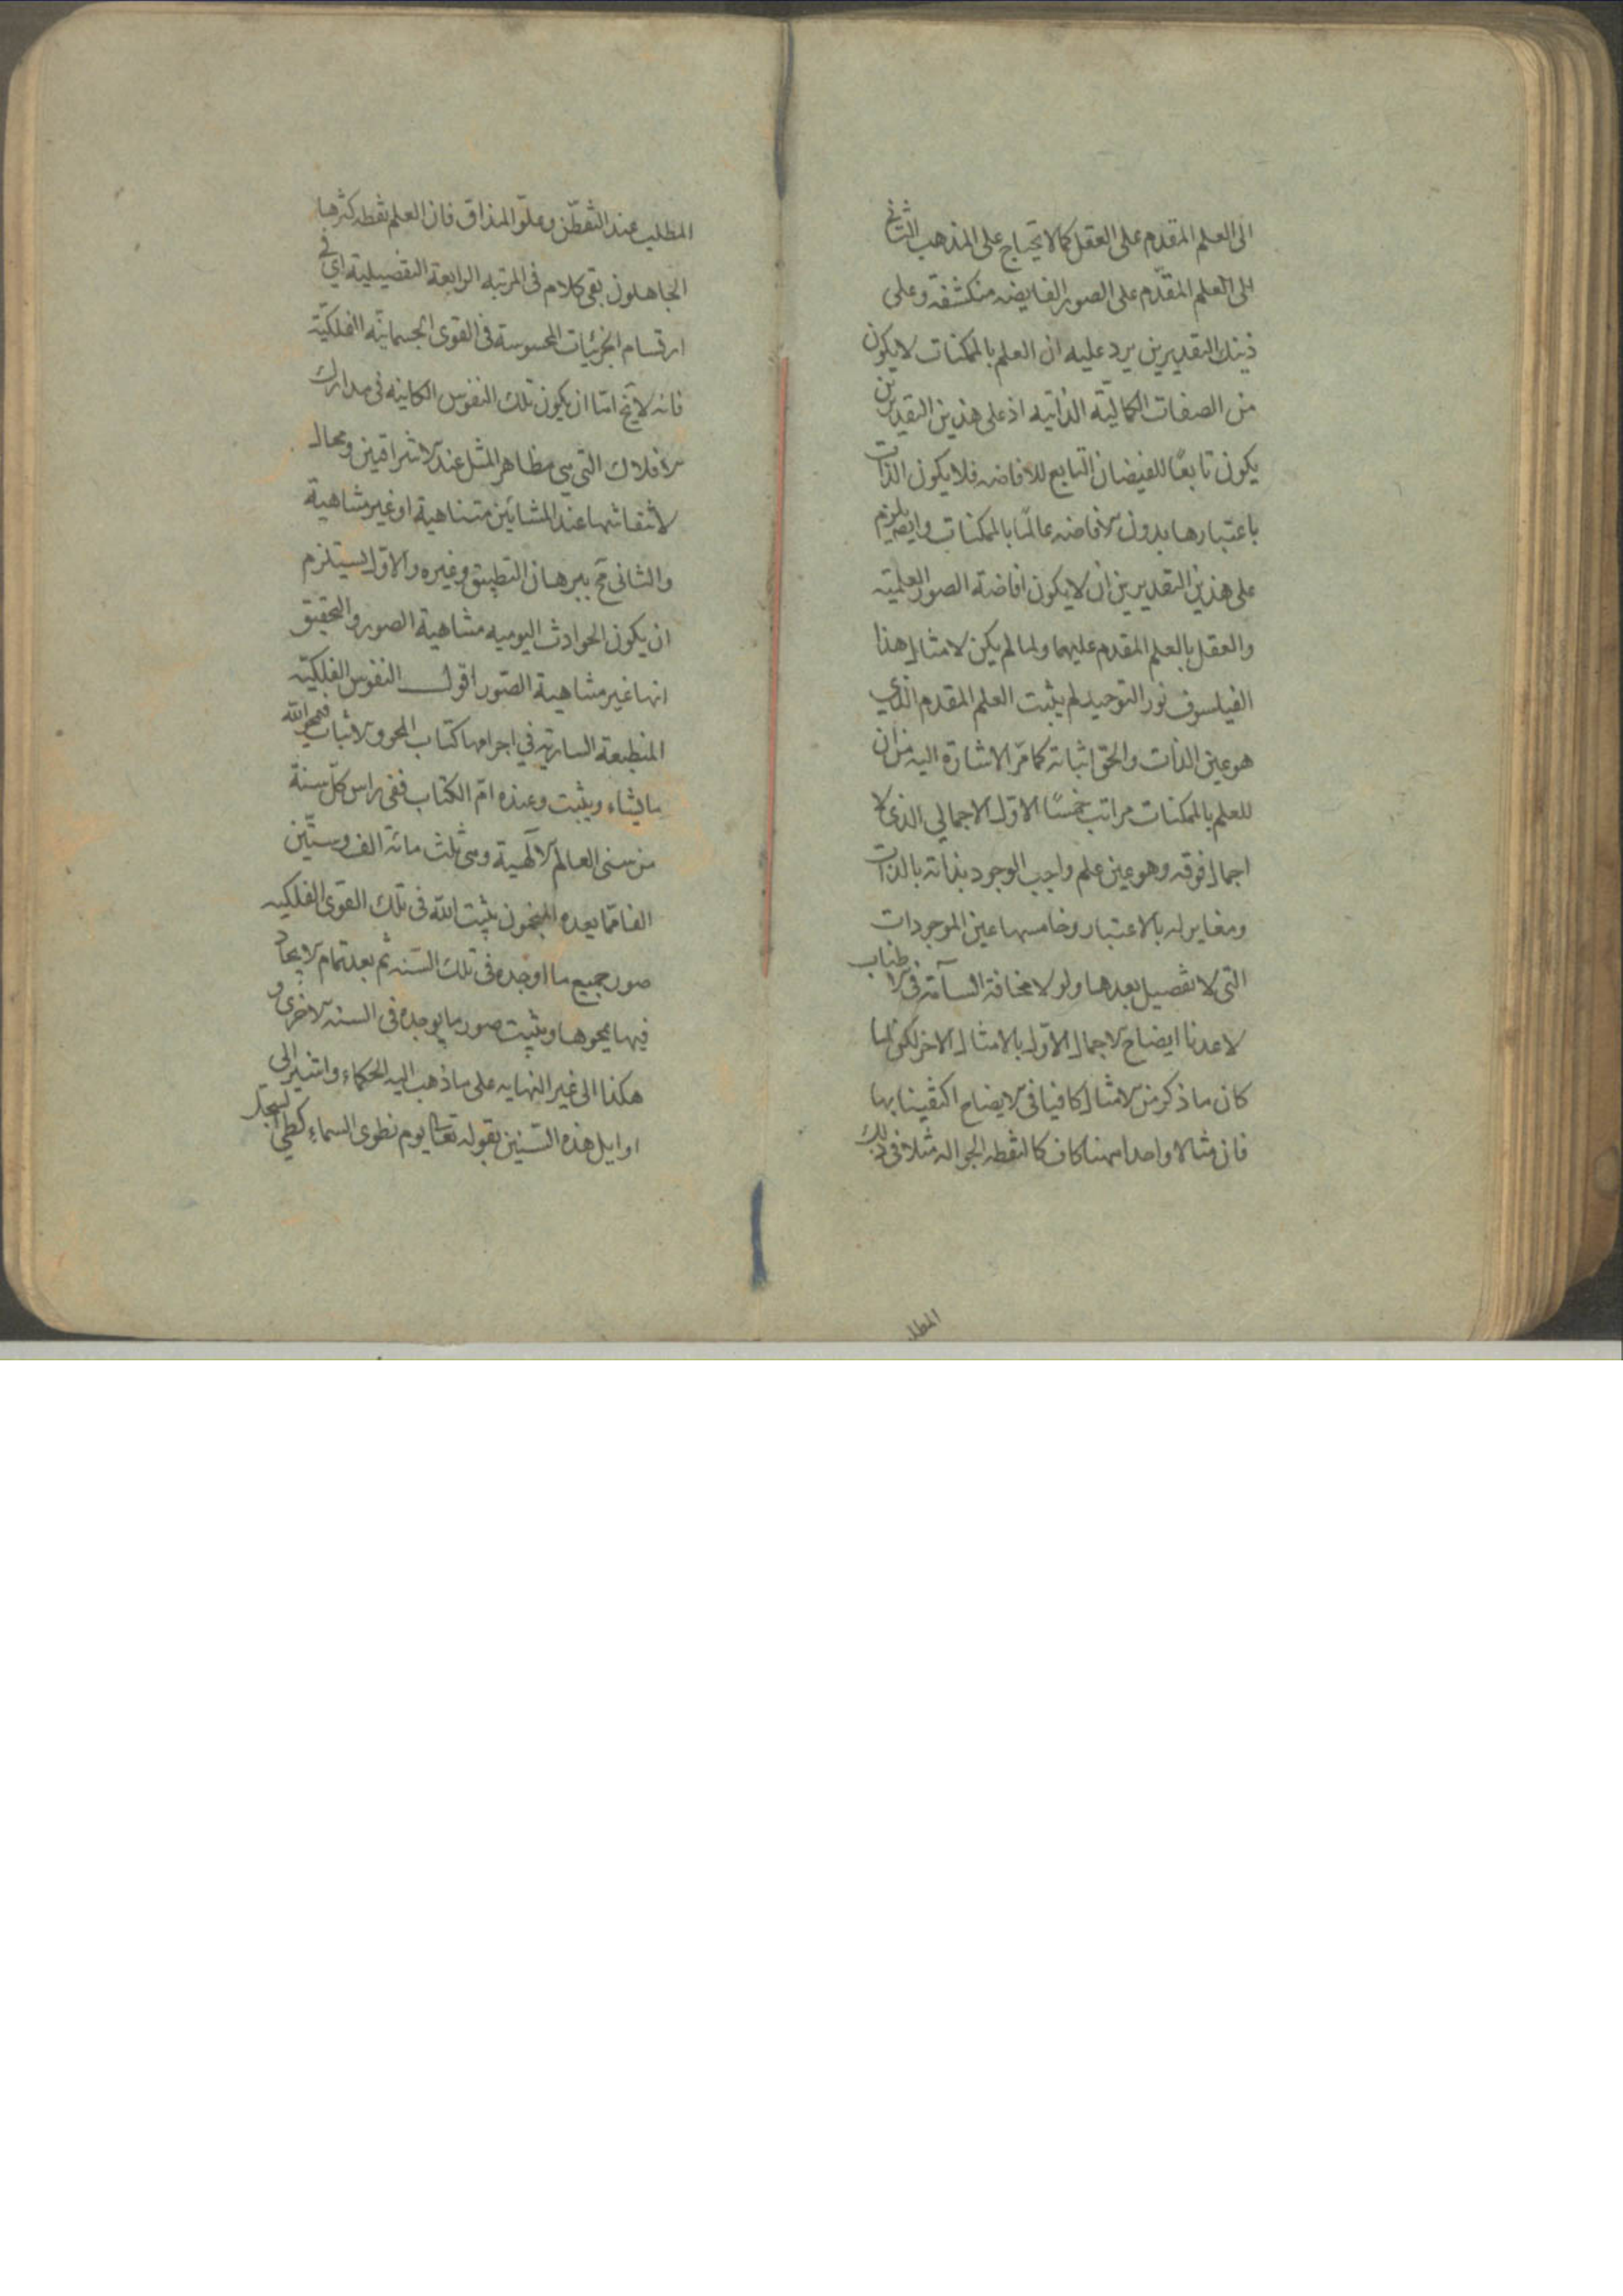 الى العلم المقدم على العقل كما لا يحتاج على المذهب الثانى
الى العلم المقدّم على الصور الفايضه منكشفة وعلى
ذينك التقديرين يرد عليه ان العلم بالممكنات لا يكون
من الصفات الكماليّة الذاتيه اذ على هذين التقديرين
يكون تابعًا للفيضان التابع للافاضه فلا يكون الذات
باعتبارها بدون الافاضه عالمًا بالممكنات وايضا يلزم
على هذين التقديرين ان لا يكون افاضة الصور العلميّه
والعقل بالعلم المقدم عليهما ولما لم يكن لامثال هذا
الفيلسوف نور التوحيد لم يثبت العلم المقدم الذي
هو عين الذات والحق اثباته كما مرّ الاشارة اليه من ان
للعلم بالممكنات مراتب خمسًا الاول الاجمالي الذى لا
اجمال فوقه وهو عين علم واجب الوجود بذاته بالذات
ومغاير له بالاعتبار وخامسها عين الموجودات
التى لا تفصيل بعدها ولولا مخافة السآمة فى الاطناب
لاعدنا ايضاح الاجمال الاول بالامثال الاخر لكن لما
كان ما ذكر من الامثال كافيا فى الايضاح اكتفينا بها
فان مثالا واحدا ههنا كاف كالنقطه الجواله مثلا فى ذلك
المطلـ
المطلب عند التفطّن وعلوّ المذاق فان العلم نقطه كثرها
الجاهلون بقى كلام فى المرتبه الرابعة التفصيلية اى فى
ارتسام الجزئيات المحسوسة فى القوى الجسمانيّه الفلكيّة
فانه لا يخ امّا ان يكون تلك النفوس الكاينه فى مدارك
الافلاك التى هى مظاهر المثل عند الاشراقيين ومحال
لانتقاشها عند المشائين متناهية او غير متناهية
والثانى مح ببرهان التطبيق وغيره والاوّل يستلزم
ان يكون الحوادث اليوميه متناهية الصور والتحقيق
انها غير متناهية الصّور اقول النفوس الفلكيّه
المنطبعة السارية في اجرامها كتاب المحو والاثبات فيمحو الله
ما يشاء ويثبت وعنده امّ الكتاب ففى راس كلّ سنة
من سنى العالم الالهية وهى ثلث مائة الف وستّين
الفا مما يعده المنجمون يثبت الله فى تلك القوى الفلكيه
صور جميع ما اوجده فى تلك السّنه ثم بعد تمام الايجاد
فيها يمحوها ويثبت صور ما يوجده فى السنه الاخرى و
هكذا الى غير النهايه على ما ذهب اليه الحكماء واشير الى
اوايل هذه السّنين بقوله تعالى يوم نطوى السماء كطى السجل